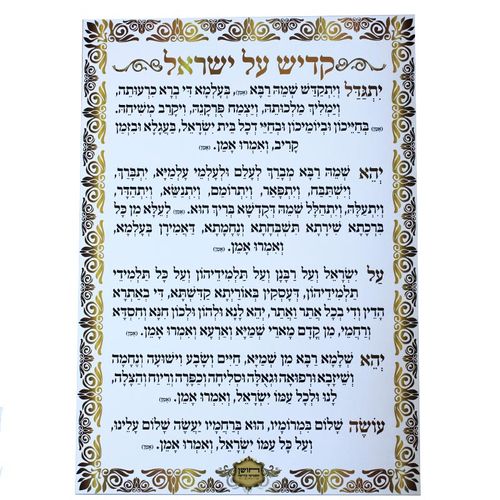 קדיש על ישראל
יִתְגַּדַּל וְיִתְקַדַּשׁ שְׁמֵהּ רַבָּא (אמן), בְּעָלְמָא דִּי בְרָא כִרְעוּתֵהּ,
וְיַמְלִיךְ מַלְכוּתֵהּ, וְיַצְמַח פֻּרְקָנֵהּ, וִיקָרֵב מְשִׁיחֵהּ.
(אמן) בְּחַיֵּיכוֹן וּבְיוֹמֵיכוֹן וּבְחַיֵּי דְכָל בֵּית יִשְׂרָאֵל, בַּעֲגָלָא וּבִזְמַן
קָרִיב, וְאִמְרוּ אָמֵן. (אמן)
יְהֵא שְׁמֵהּ רַבָּא מְבָרַךְ לְעָלַם וּלְעָלְמֵי עָלְמַיָּא, יִתְבָּרַךְ,
וְיִשְׁתַּבַּח, וְיִתְפָּאַר, וְיִתְרוֹמַם, וְיִתְנַשֵּׂא, וְיִתְהַדָּר,
וְיִתְעַלֶּה, וְיִתְהַלָּל שְׁמֵהּ דְּקֻדְשָׁא בְּרִיךְ הוּא. (אמן) לְעֵלָּא מִן כָּל
בִּרְכָתָא שִׁירָתָא תִּשְׁבְּחָתָא וְנֶחָמָתָא, דַּאֲמִירָן בְּעָלְמָא,
וְאִמְרוּ אָמֵן. (אמן)
עַל יִשְׂרָאֵל וְעַל רַבָּנָן וְעַל תַּלְמִידֵיהוֹן וְעַל כָּל תַּלְמִידֵי
תַלְמִידֵיהוֹן, דְּעָסְקִין בְּאוֹרַיְתָא קַדִּשְׁתָּא, דִּי בְאַתְרָא
הָדֵין וְדִי בְכָל אֲתַר וַאֲתַר, יְהֵא לָנָא וּלְהוֹן וּלְכוֹן חִנָּא וְחִסְדָּא
וְרַחֲמֵי, מִן קֳדָם מָארֵי שְׁמַיָּא וְאַרְעָא וְאִמְרוּ אָמֵן. (אמן)
יְהֵא שְׁלָמָא רַבָּא מִן שְׁמַיָּא, חַיִּים וְשָׂבָע וִישׁוּעָה וְנֶחָמָה
וְשֵׁיזָבָא וּרְפוּאָה וּגְאֻלָּה וּסְלִיחָה וְכַפָּרָה וְרֵיוַח וְהַצָּלָה,
לָנוּ וּלְכָל עַמּוֹ יִשְׂרָאֵל, וְאִמְרוּ אָמֵן. (אמן)
עוֹשֶׂה שָׁלוֹם בִּמְרוֹמָיו, הוּא בְּרַחֲמָיו יַעֲשֶׂה שָׁלוֹם עָלֵינוּ,
וְעַל כָּל עַמּוֹ יִשְׂרָאֵל, וְאִמְרוּ אָמֵן. (אמן)
חושן